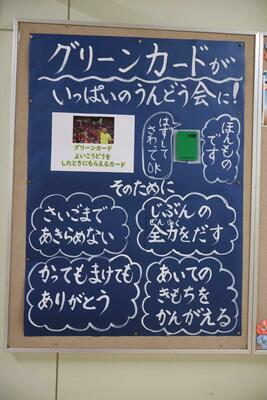 グリーンカードが
いっぱいのうんどう会に!
グリーンカード
よいこうどうを
したときにもらえるカード
はずして
さわって
OK
ほんもの
です
そのために
さいごまで
あきらめない
じぶんの
全力をだす
ぜんりょく
かってもまけても
ありがとう
あいての
きもちを
かんがえる